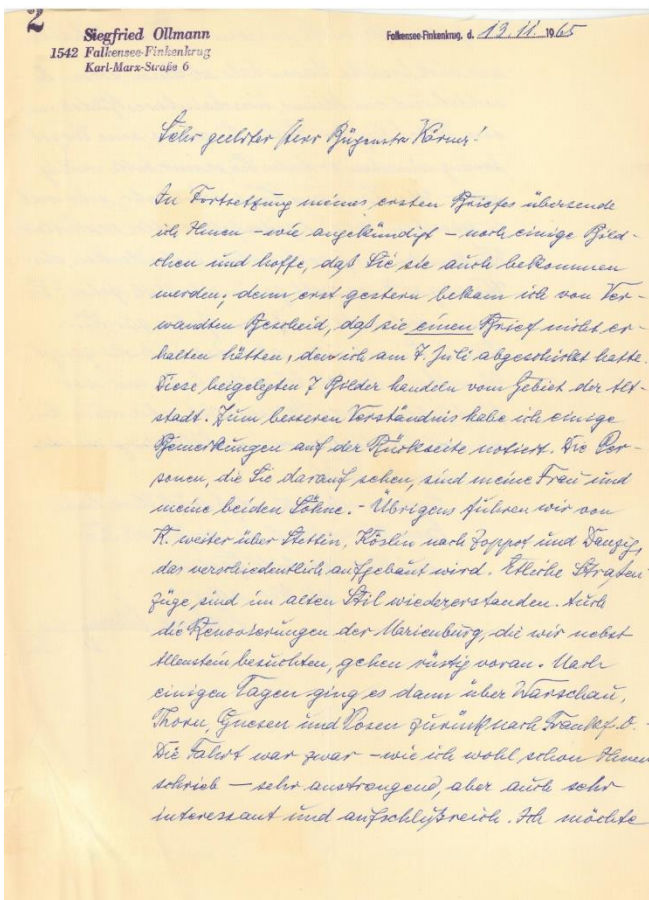 2
Siegfried Ollmann
1542 Falkensee-Finkenkrug
Karl-Marx-Straße 6
Falkensee-Finkenkrug, d. 13. 11. 1965
Sehr geehrter Herr Körnz!
In Fortsetzung meines ersten Briefes übersende
ich Ihnen – wie angekündigt – noch einige Bild-
chen und hoffe, daß Sie sie auch bekommen
werden; denn erst gestern bekam ich von Ver-
wandten Bescheid, daß sie einen Brief nicht er-
halten hätten, den ich am 7. Juli abgeschickt hatte.
Diese beigelegten 7 Bilder handeln vom Gebiet der Alt-
stadt. Zum besseren Verständnis habe ich einige
Bemerkungen auf der Rückseite notiert. Die Per-
sonen, die Sie darauf sehen, sind meine Frau und
meine beiden Söhne. – Übrigens fuhren wir von
K. weiter über Stettin, Köslin nach Zoppot und Danzig,
das verschiedentlich aufgebaut wird. Etliche Straßen
züge sind im alten Stil wiedererstanden. Auch
die Renovierungen der Marienburg, die wir nebst
Allenstein besuchten, gehen rüstig voran. Nach
einigen Tagen ging es dann über Warschau,
Thorn, Gnesen und Posen zurück nach Frankf. O. –
Die Fahrt war zwar – wie ich wohl schon Ihnen
schrieb – sehr anstrengend, aber auch sehr
interessant und aufschlußreich. Ich möchte